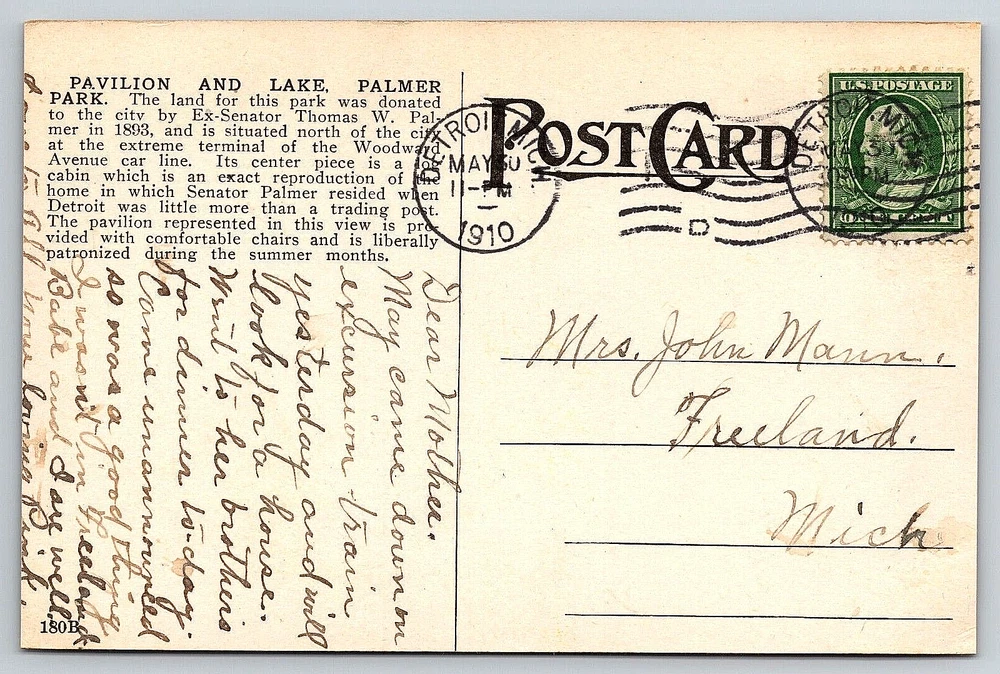 PAVILION AND LAKE, PALMER
PARK. The land for this park was donated
to the city by Ex-Senator Thomas W. Pal-
mer in 1893, and is situated north of the city
at the extreme terminal of the Woodward
Avenue car line. Its center piece is a log
cabin which is an exact reproduction of the
home in which Senator Palmer resided when
Detroit was little more than a trading post.
The pavilion represented in this view is pro-
vided with comfortable chairs and is liberally
patronized during the summer months.
POST CARD
DETROIT, MICH.
MAY 30
11-PM
1910
D
DETROIT, MICH.
U.S. POSTAGE
Mrs. John Mann.
Freeland.
Mich
Dear Mother.
May came down on
excursion train
yesterday and will
look for a house.
Went to her brothers
for dinner to-day.
Came unannounced
so was a good thing
I wasn't in Freeland.
Babe and I are well.
your loving
180B